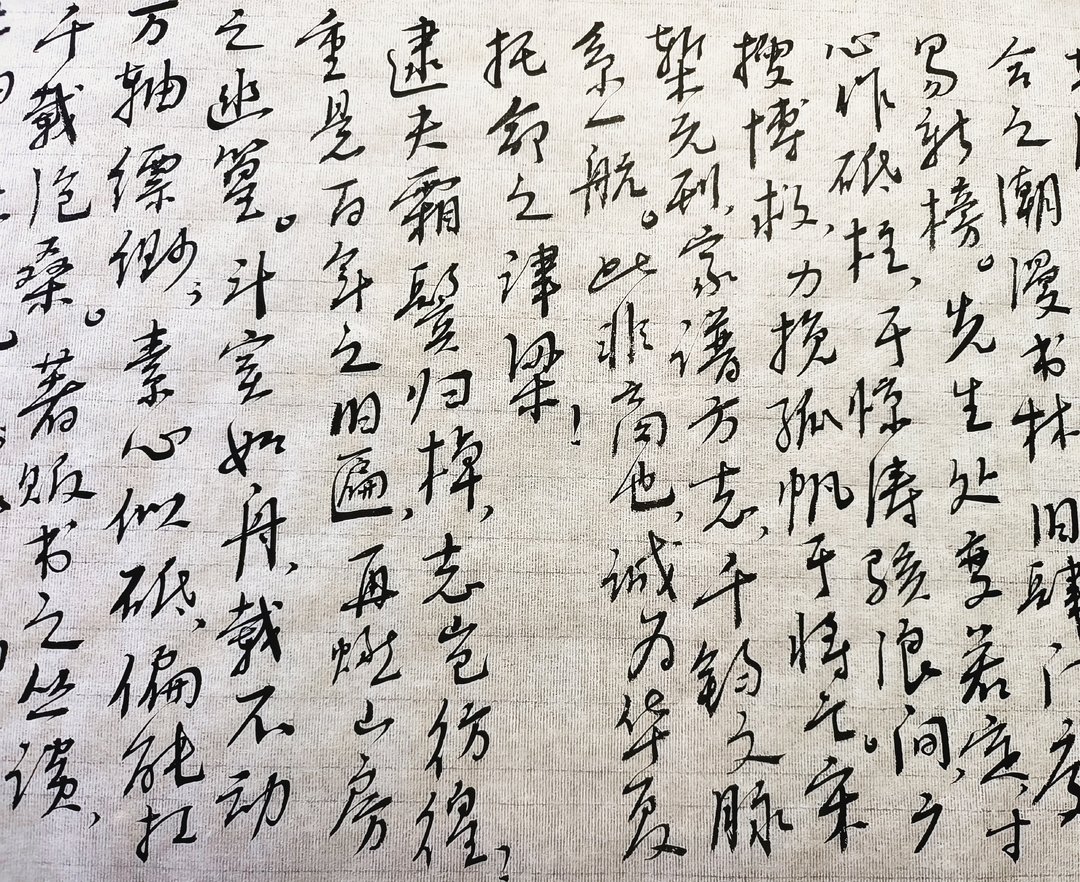 合之潮漫书林 旧肆门庭
易新榜。先生处变若定,寸
心作砥柱,于惊涛骇浪间,广
搜博救,力挽孤帆于将亡。宋
椠元刊,家谱方志,千钧文脉
系一航。此非商也,诚为华夏
托命之津梁!
逮夫霜鬓归棹,志岂彷徨;
重悬百年之旧匾,再燃山房
之幽篁。斗室如舟,载不动
万轴缥缃;素心似砥,偏能扛
千载沧桑。著贩书之丛